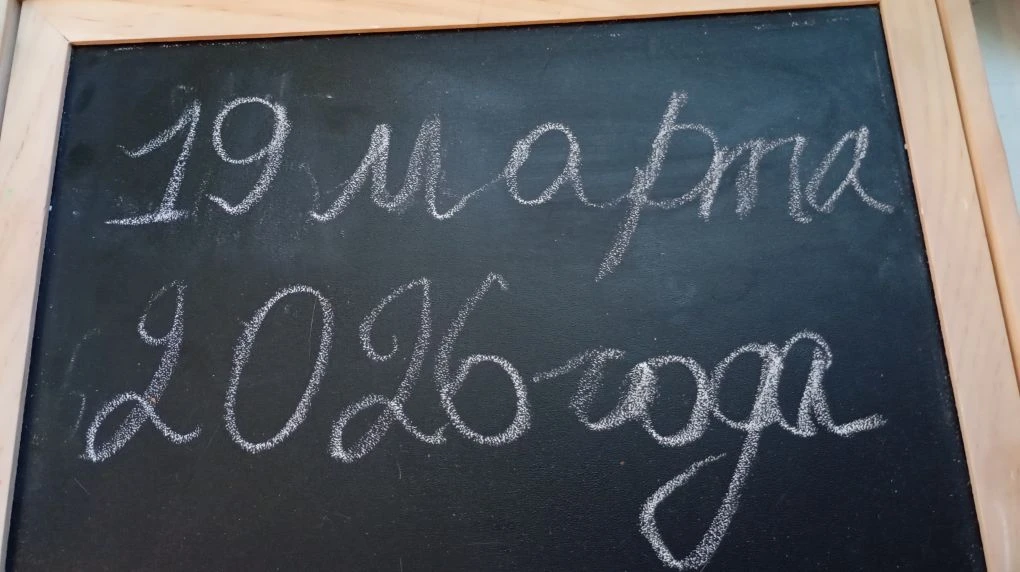 19 марта
2026 года